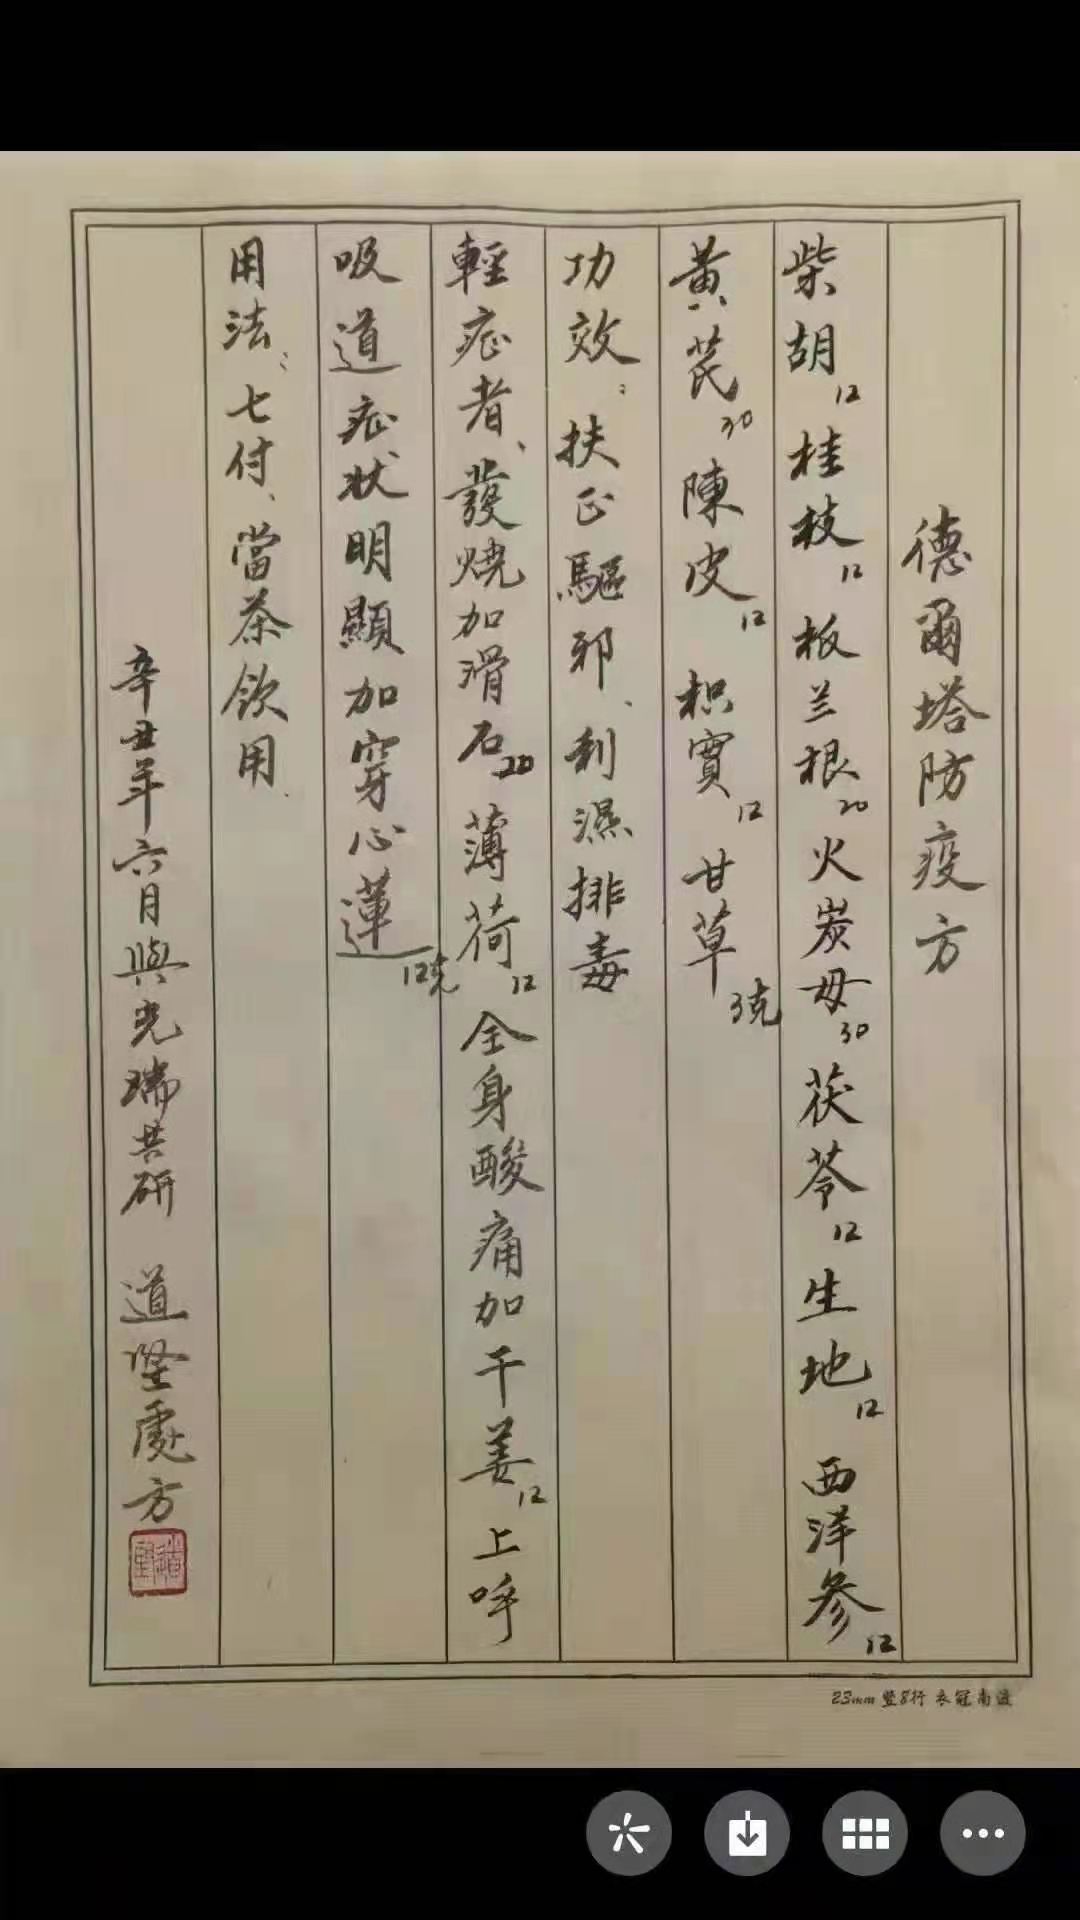 德爾塔防疫方
柴胡12 桂枝12 板兰根20 火炭母30 茯苓12 生地12 西洋參12
黃芪30 陳皮12 枳實12 甘草3克
功效：扶正驅邪、利濕排毒
輕症者、發燒加滑石20 薄荷12 全身酸痛加干姜12 上呼
吸道症状明顯加穿心蓮12克
用法：七付、當茶飲用.
辛丑年六月與光瑞共研 道坚處方
23mm 竖8行 衣冠南渡